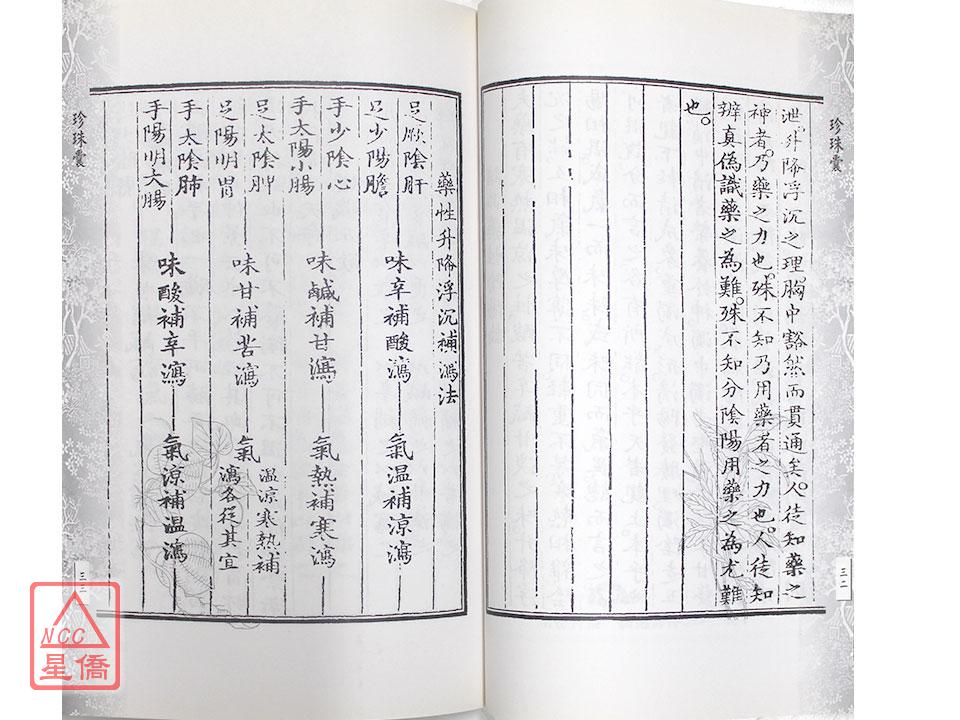 珍珠囊
泄。升降浮沉之理。胸中豁然而貫通矣。人徒知藥之
神者。乃藥之力也。殊不知乃用藥者之力也。人徒知
辨真偽識藥之為難。殊不知分陰陽用藥之為尤難
也。
三二
藥性升降浮沉補瀉法
足厥陰肝
足少陽膽
味辛補酸瀉
氣溫補涼瀉
手少陰心
手太陽小腸
味鹹補甘瀉
氣熱補寒瀉
足太陰脾
足陽明胃
味甘補苦瀉
氣
溫涼寒熱補
瀉各從其宜
手太陰肺
手陽明大腸
味酸補辛瀉
氣涼補溫瀉
珍珠囊
三三
NCC
星僑